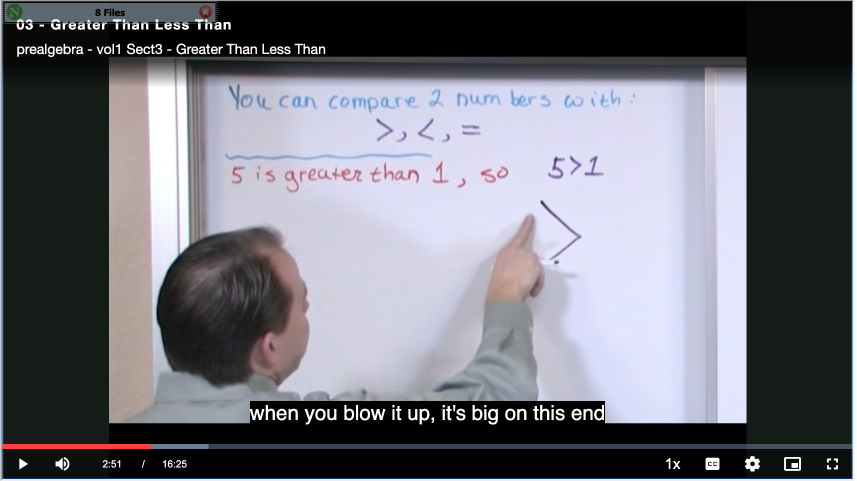 8 Files
03 - Greater Than Less Than
prealgebra - vol1 Sect3 - Greater Than Less Than
You can compare 2 numbers with:
>, <, =
5 is greater than 1, so 5>1
>
when you blow it up, it's big on this end
2:51 / 16:25 1x CC